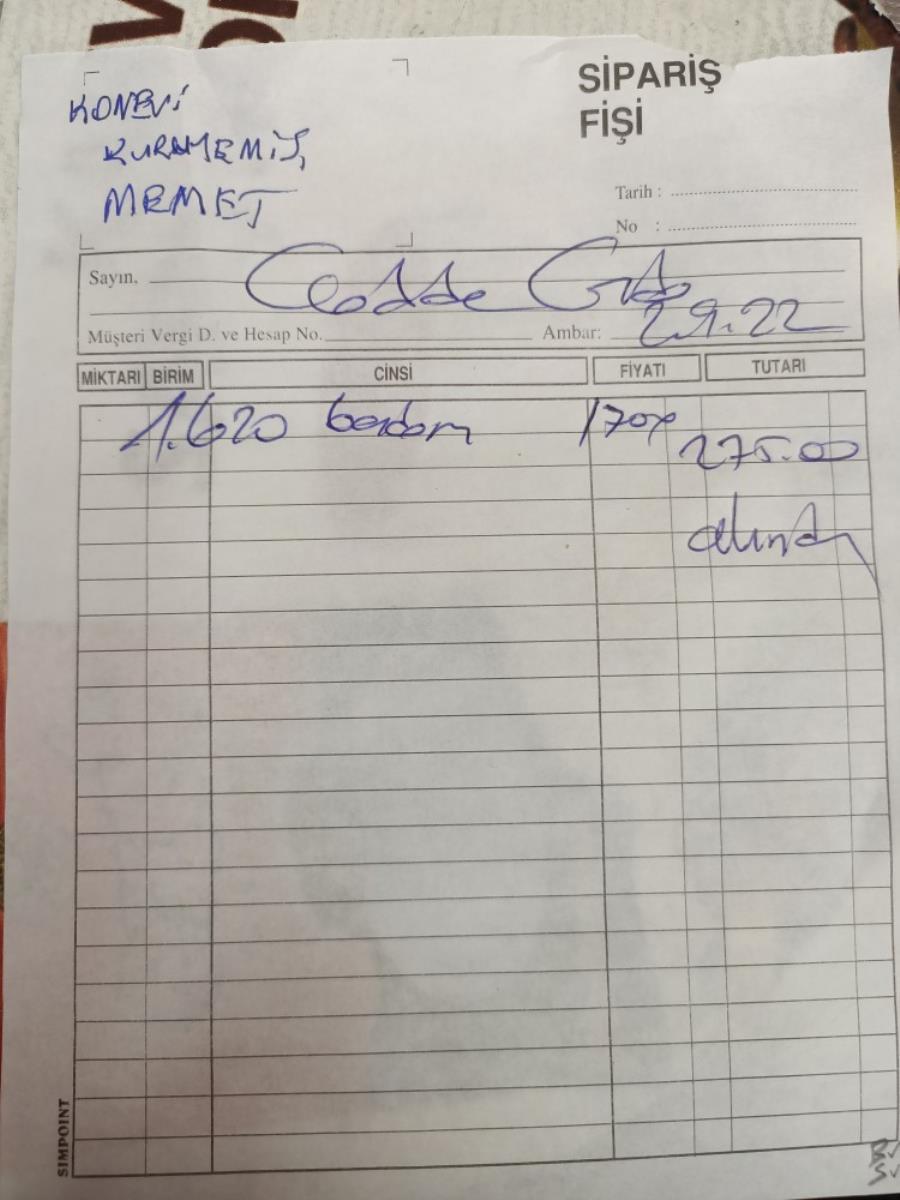 KONEVİ
KURUYEMİŞ
MEMET
SİPARİŞ
FİŞİ
Tarih :
No :
Sayın, Cadde Gıda
Müşteri Vergi D. ve Hesap No. Ambar: 2.9.22
MİKTARI BİRİM CİNSİ FİYATI TUTARI
1.620 badem 170x
275.00
alındı
SIMPOINT